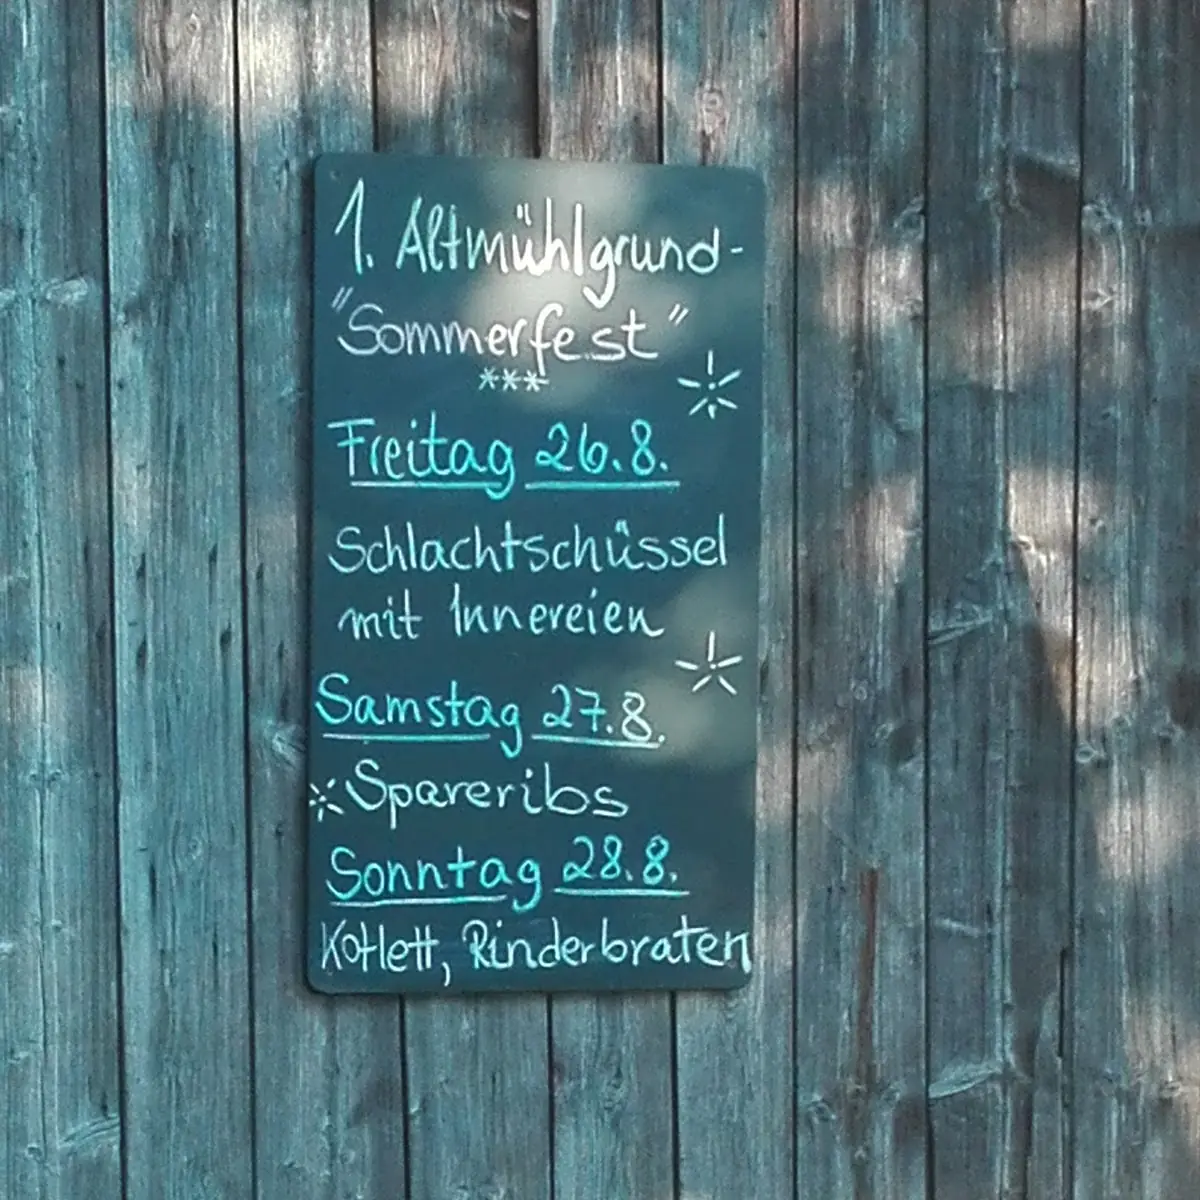 1. Altmühlgrund-
"Sommerfest"
***
Freitag 26.8.
Schlachtschüssel
mit Innereien
Samstag 27.8.
Spareribs
Sonntag 28.8.
Kotlett, Rinderbraten